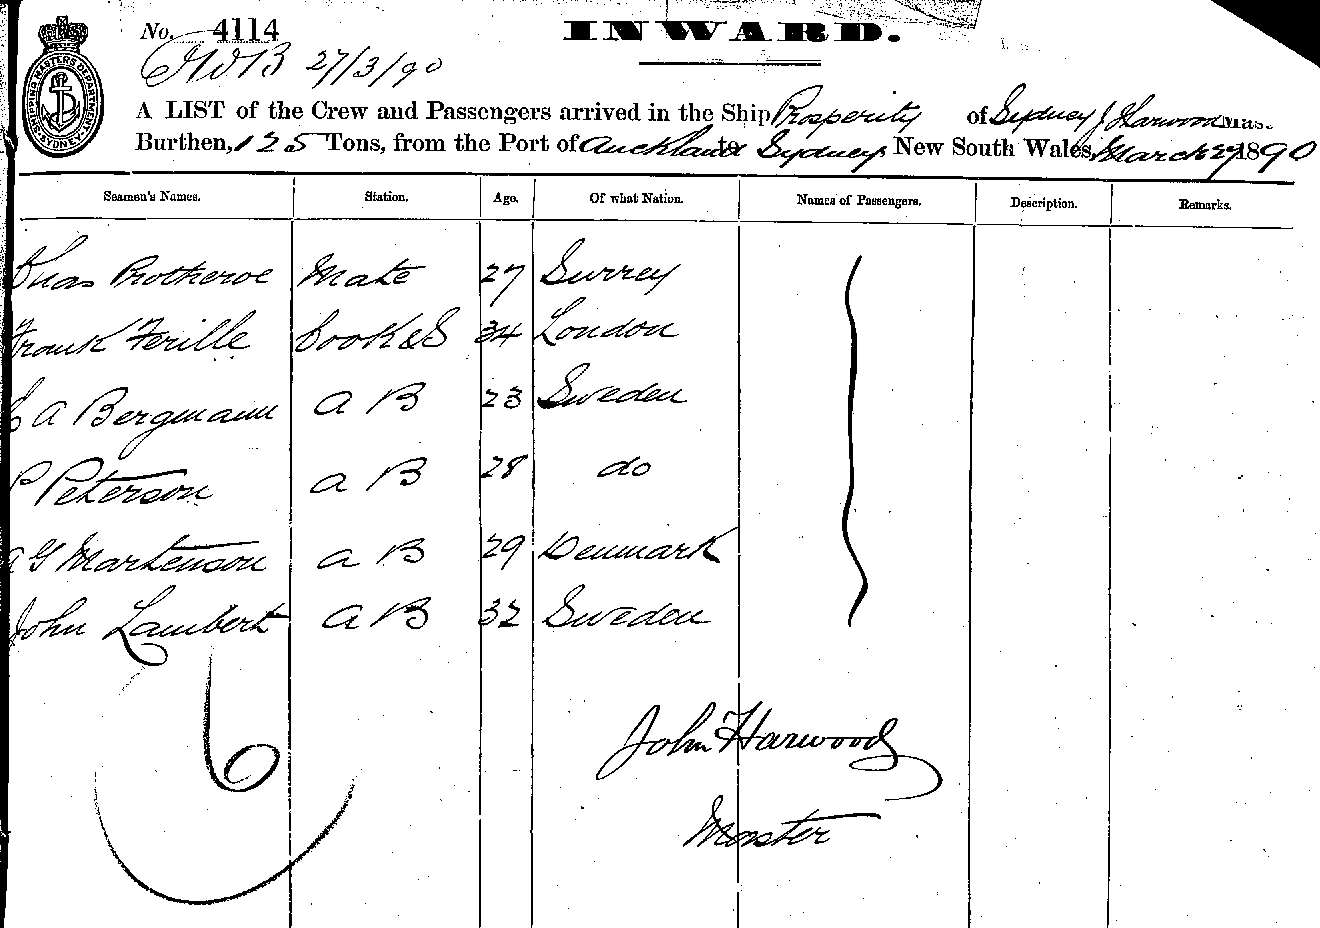 No. 4114
INWARD.
SHIPPING MASTERS DEPARTMENT SYDNEY
27/3/90
A LIST of the Crew and Passengers arrived in the Ship Prosperity of Sydney J Harwood Mas.
Burthen, 125 Tons, from the Port of Auckland to Sydney, New South Wales, March 27 1890
Seamen's Names. Station. Age. Of what Nation. Names of Passengers. Description. Remarks.
Protheroe Mate 27 Surrey
Frank Ferille Cook & S 34 London
A Bergmann A B 23 Sweden
P Peterson A B 28 do
G Martenson A B 29 Denmark
John Lambert A B 32 Sweden
6
John Harwood
Master